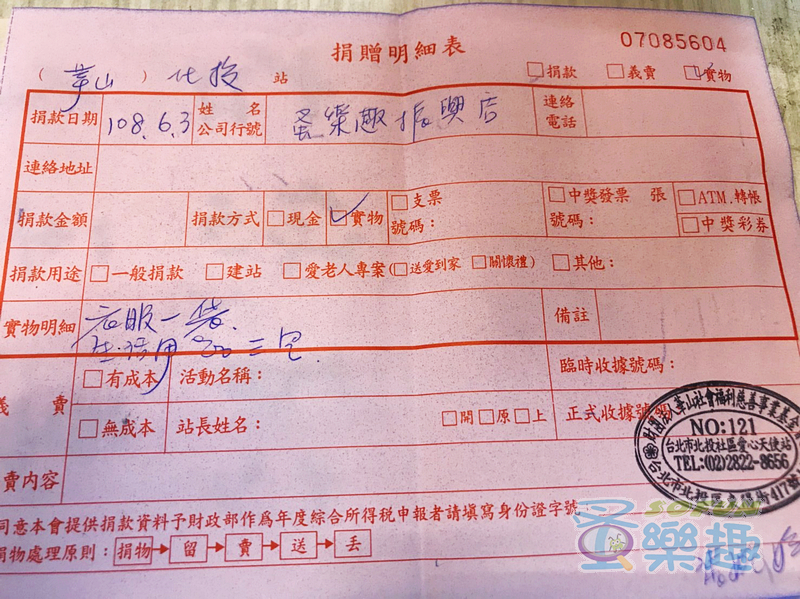 捐贈明細表
07085604
(華山) 北投 站
□捐款 □義賣 □實物
捐款日期 108.6.3 姓名 公司行號 蛋樂趣振興店 連絡電話
連絡地址
捐款金額 捐款方式 □現金 □實物 □支票 號碼： □中獎發票 張 號碼： □ATM.轉帳 □中獎彩券
捐款用途 □一般捐款 □建站 □愛老人專案(□送愛到家 □關懷禮) □其他：
實物明細 衣服一袋. 備註
生活用品三包.
義賣 □有成本 活動名稱： 臨時收據號碼：
□無成本 站長姓名： □開□原□上 正式收據號碼
賣內容
財團法人華山社會福利慈善事業基金
NO:121
台北市北投社區愛心天使站
TEL:(02)2822-8656
台北市北投區
417號
同意本會提供捐款資料予財政部作為年度綜合所得稅申報者請填寫身份證字號
捐物處理原則：捐物→留→賣→送→丟
蛋樂趣